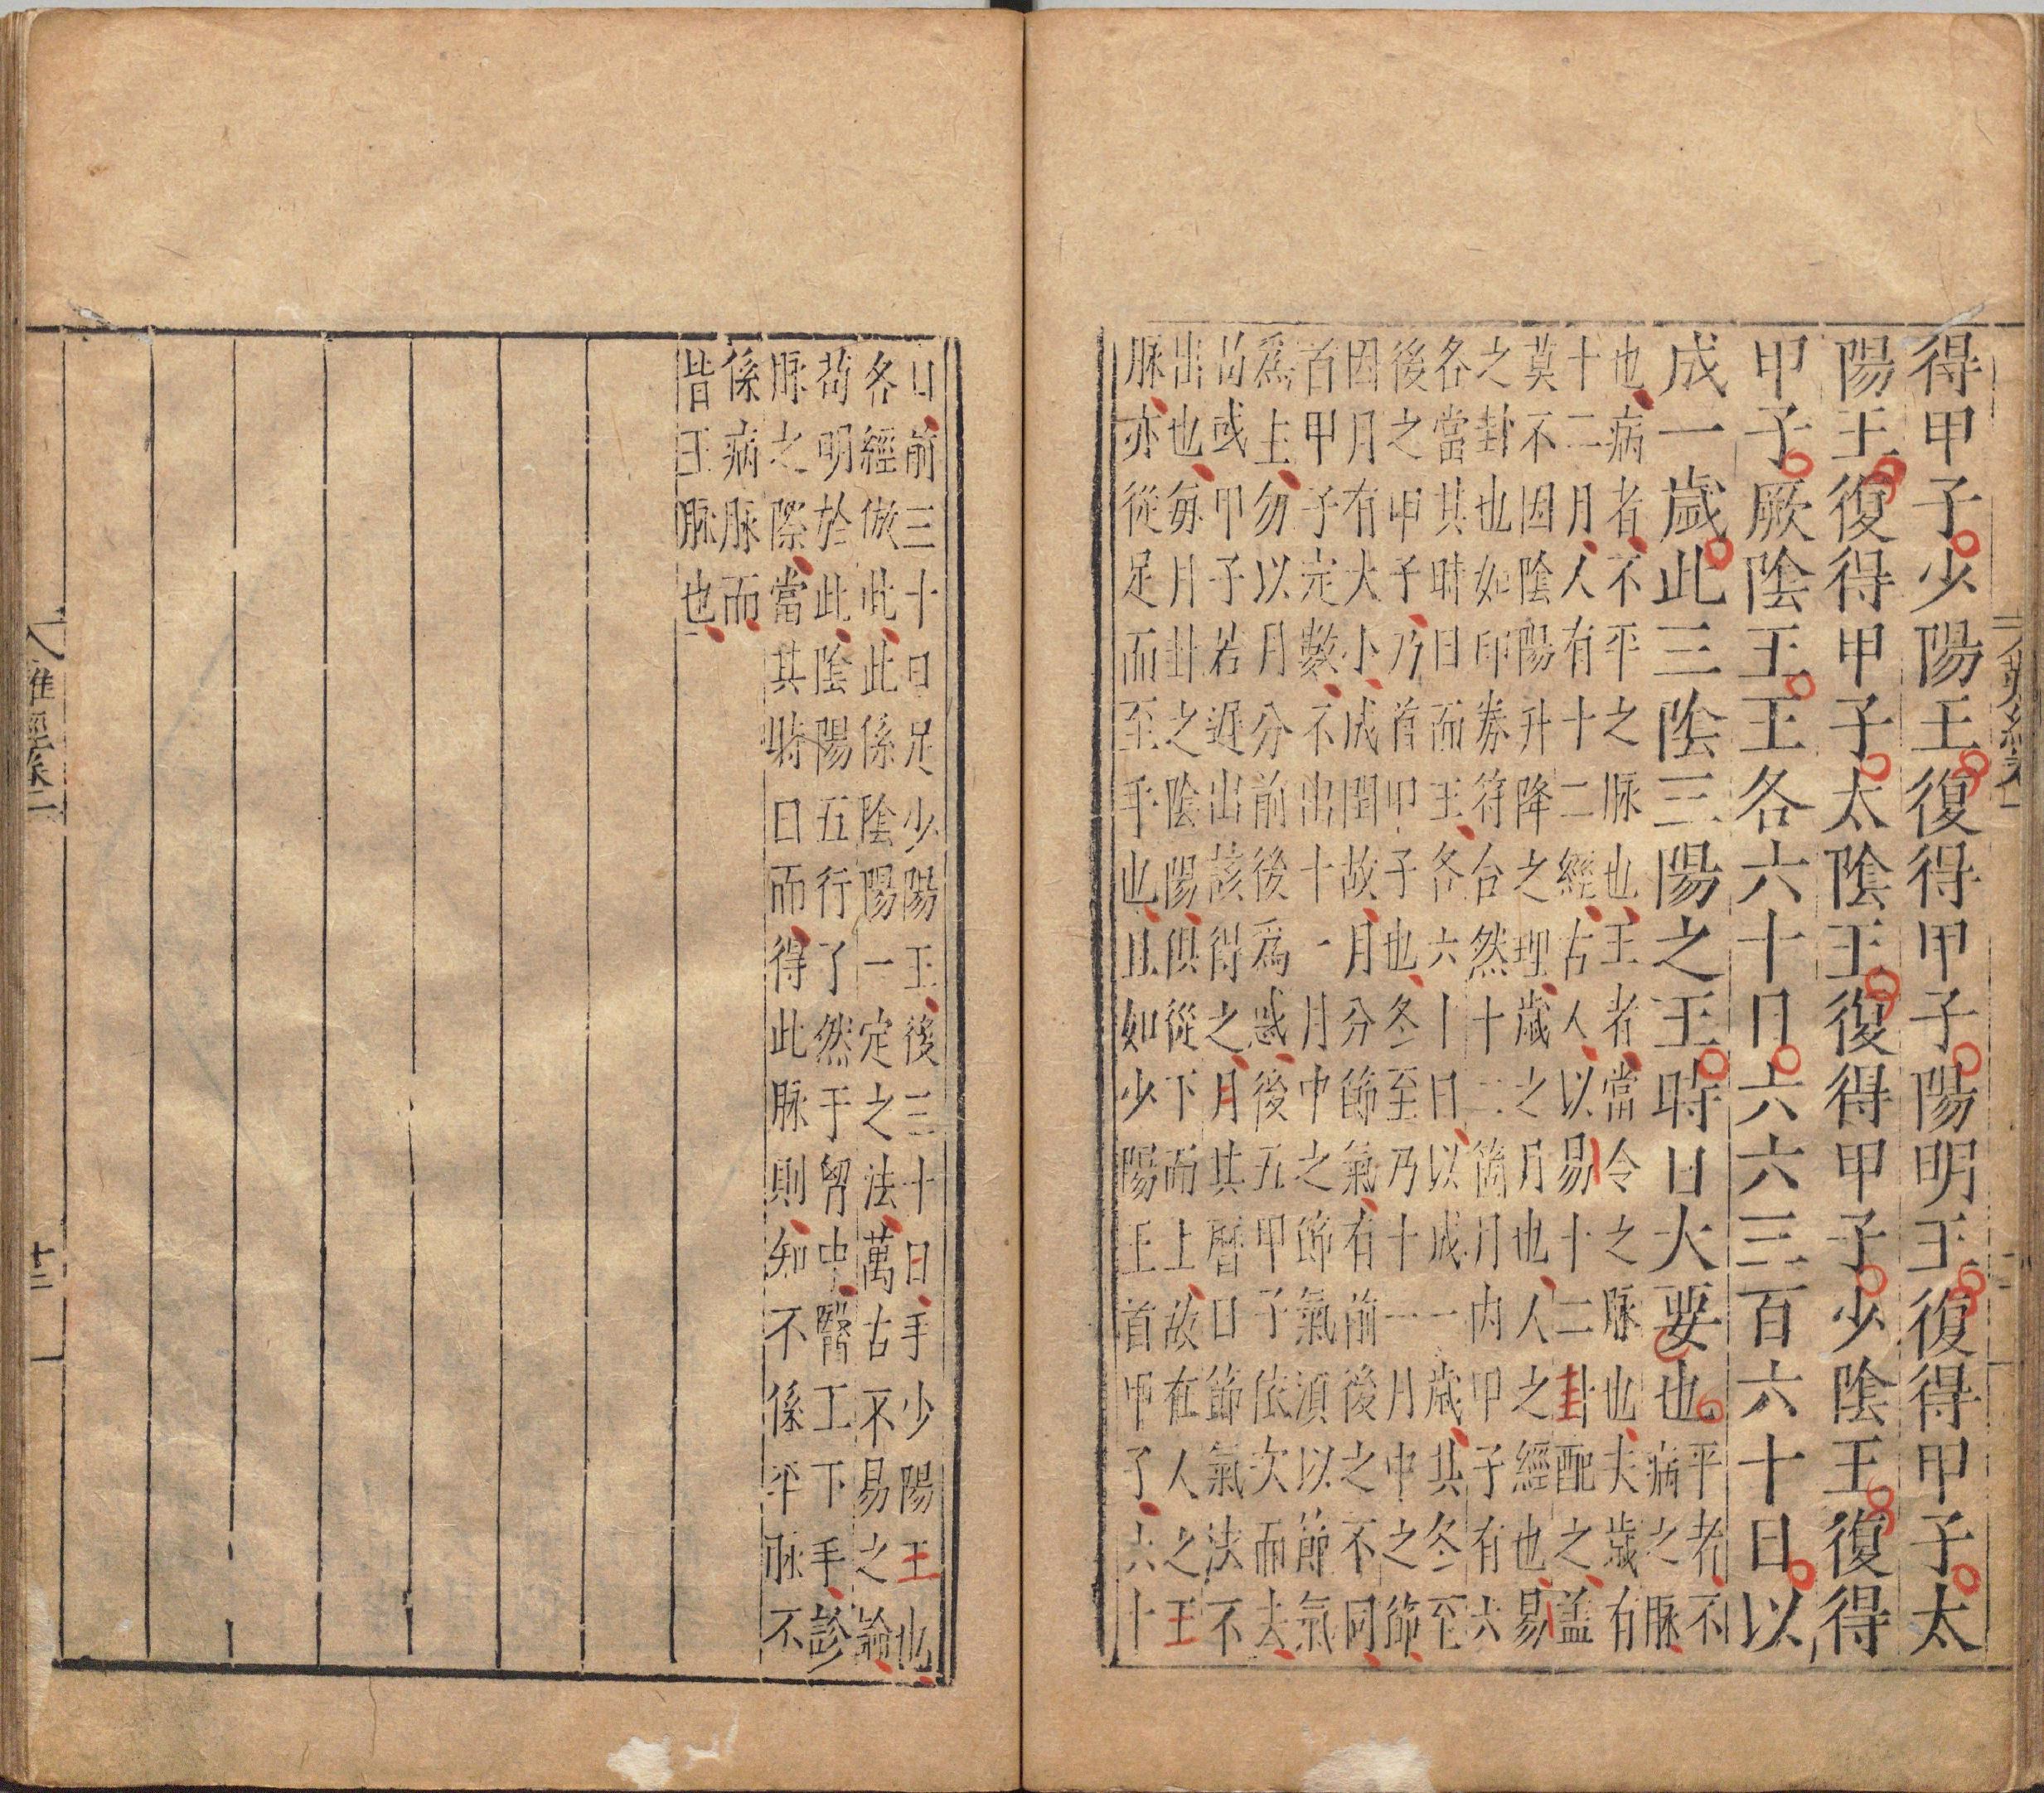 得甲子少陽王復得甲子陽明王復得甲子太
陽王復得甲子太陰王復得甲子少陰王復得
甲子厥陰王王各六十日六六三百六十日以
成一歲此三陰三陽之王時日大要也
平者不
病之脉
也病者不平之脉也王者當令之脉也夫歲有
十二月人有十二經古人以易十二卦配之蓋
莫不因陰陽升降之理歲之月也人之經也易
之卦也如印券符合然十二箇月內甲子有六
各當其時日而王各六十日以成一歲其冬至
後之甲子乃首甲子也冬至乃十一月中之節
因月有大小成閏故月分節氣有前後之不同
首甲子定數不出十一月中之節氣須以節氣
爲主勿以月分前後爲惑後五甲子依次而去
苟或甲子若遲出該得之月其曆日節氣法不
出也每月卦之陰陽俱從下而上故在人之王
脉亦從足而至手也且如少陽王首甲子六十
日前三十日足少陽王後三十日手少陽王也
各經倣此此係陰陽一定之法萬古不易之論
苟明於此陰陽五行了然于胷中醫工下手診
脉之際當其時日而得此脉則知不係平脉不
係病脉而
皆王脉也
難經卷二
十二